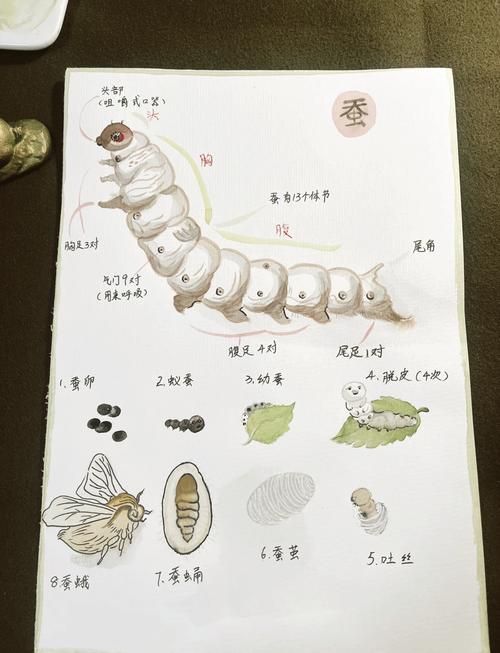 头部
(咀嚼式口器)
头
蚕
胸
蚕有13个体节
腹
胸足3对
尾角
气门9对
(用来呼吸)
腹足4对
尾足1对
1.蚕卵
2.蚁蚕
3.幼蚕
4.脱皮(4次)
5.吐丝
6.蚕茧
7.蚕蛹
8.蚕蛾